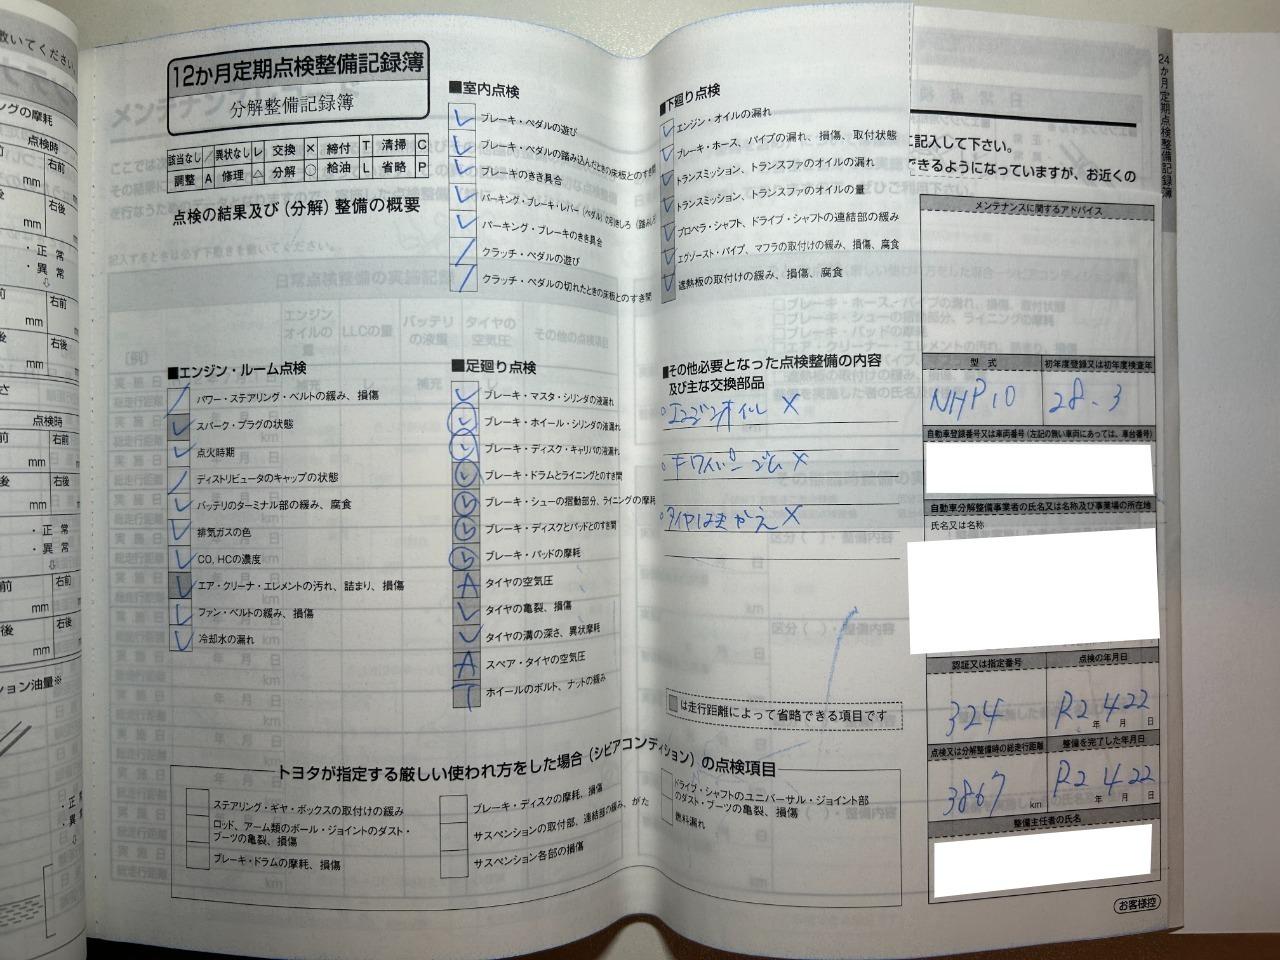 12か月定期点検整備記録簿
分解整備記録簿
該当なし / 異状なし レ 交換 × 締付 T 清掃 C
調整 A 修理 △ 分解 ○ 給油 L 省略 P
点検の結果及び(分解)整備の概要
■エンジン・ルーム点検
パワー・ステアリング・ベルトの緩み、損傷
スパーク・プラグの状態
点火時期
ディストリビュータのキャップの状態
バッテリのターミナル部の緩み、腐食
排気ガスの色
CO, HCの濃度
エア・クリーナ・エレメントの汚れ、詰まり、損傷
ファン・ベルトの緩み、損傷
冷却水の漏れ
■室内点検
ブレーキ・ペダルの遊び
ブレーキ・ペダルの踏み込んだときの床板とのすき間
ブレーキのきき具合
パーキング・ブレーキ・レバー(ペダル)の引きしろ
パーキング・ブレーキのきき具合
クラッチ・ペダルの遊び
クラッチ・ペダルの切れたときの床板とのすき間
■足廻り点検
ブレーキ・マスタ・シリンダの液漏れ
ブレーキ・ホイール・シリンダの液漏れ
ブレーキ・ディスク・キャリパの液漏れ
ブレーキ・ドラムとライニングとのすき間
ブレーキ・シューの摺動部分、ライニングの摩耗
ブレーキ・ディスクとパッドとのすき間
ブレーキ・パッドの摩耗
A タイヤの空気圧
タイヤの亀裂、損傷
タイヤの溝の深さ、異状摩耗
A スペア・タイヤの空気圧
T ホイールのボルト、ナットの緩み
■下廻り点検
エンジン・オイルの漏れ
ブレーキ・ホース、パイプの漏れ、損傷、取付状態
トランスミッション、トランスファのオイルの漏れ
トランスミッション、トランスファのオイルの量
プロペラ・シャフト、ドライブ・シャフトの連結部の緩み
エグゾースト・パイプ、マフラの取付けの緩み、損傷、腐食
遮熱板の取付けの緩み、損傷、腐食
■その他必要となった点検整備の内容
及び主な交換部品
エンジンオイル ×
ワイパーゴム ×
タイヤはきかえ ×
は走行距離によって省略できる項目です
トヨタが指定する厳しい使われ方をした場合(シビアコンディション)の点検項目
ステアリング・ギヤ・ボックスの取付けの緩み
ロッド、アーム類のボール・ジョイントのダスト・
ブーツの亀裂、損傷
ブレーキ・ドラムの摩耗、損傷
ブレーキ・ディスクの摩耗、損傷
サスペンションの取付部、連結部の緩み、がた
サスペンション各部の損傷
ドライブ・シャフトのユニバーサル・ジョイント部
のダスト・ブーツの亀裂、損傷
燃料漏れ
に記入して下さい。
できるようになっていますが、お近くの
メンテナンスに関するアドバイス
型式 初年度登録又は初年度検査年
NHP10 28.3
自動車登録番号又は車両番号(左記の無い車両にあっては、車台番号)
自動車分解整備事業者の氏名又は名称及び事業場の所在地
氏名又は名称
認証又は指定番号 点検の年月日
324 R2年4月22日
点検又は分解整備時の総走行距離 整備を完了した年月日
3867 km R2年4月22日
整備主任者の氏名
お客様控
24か月定期点検整備記録簿
敷いてください。
ングの摩耗
点検時
右前
mm
右後
mm
・正常
・異常
⇩
右前
mm
右後
mm
点検時
右前
mm
右後
mm
・正常
・異常
⇩
右前
mm
右後
mm
ション油量※